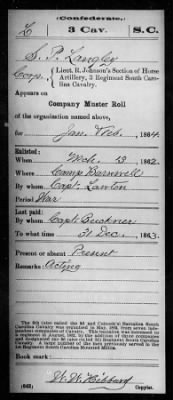 (Confederate.)
L | 3 Cav. | S. C.
S. P. Langley
Corp., Lieut. R. Johnson's Section of Horse
Artillery, 3 Regiment South Carolina
Cavalry.
Appears on
Company Muster Roll
of the organization named above,
for Jan. & Feb., 1864.
Enlisted:
When Mch. 13, 1862.
Where Camp Barnwell
By whom Capt. Lawton
Period War
Last paid:
By whom Capt. Bruckner
To what time 31 Dec., 1863.
Present or absent Present
Remarks: Acting
Book mark:
W. W. Hibbard
(642) Copyist.